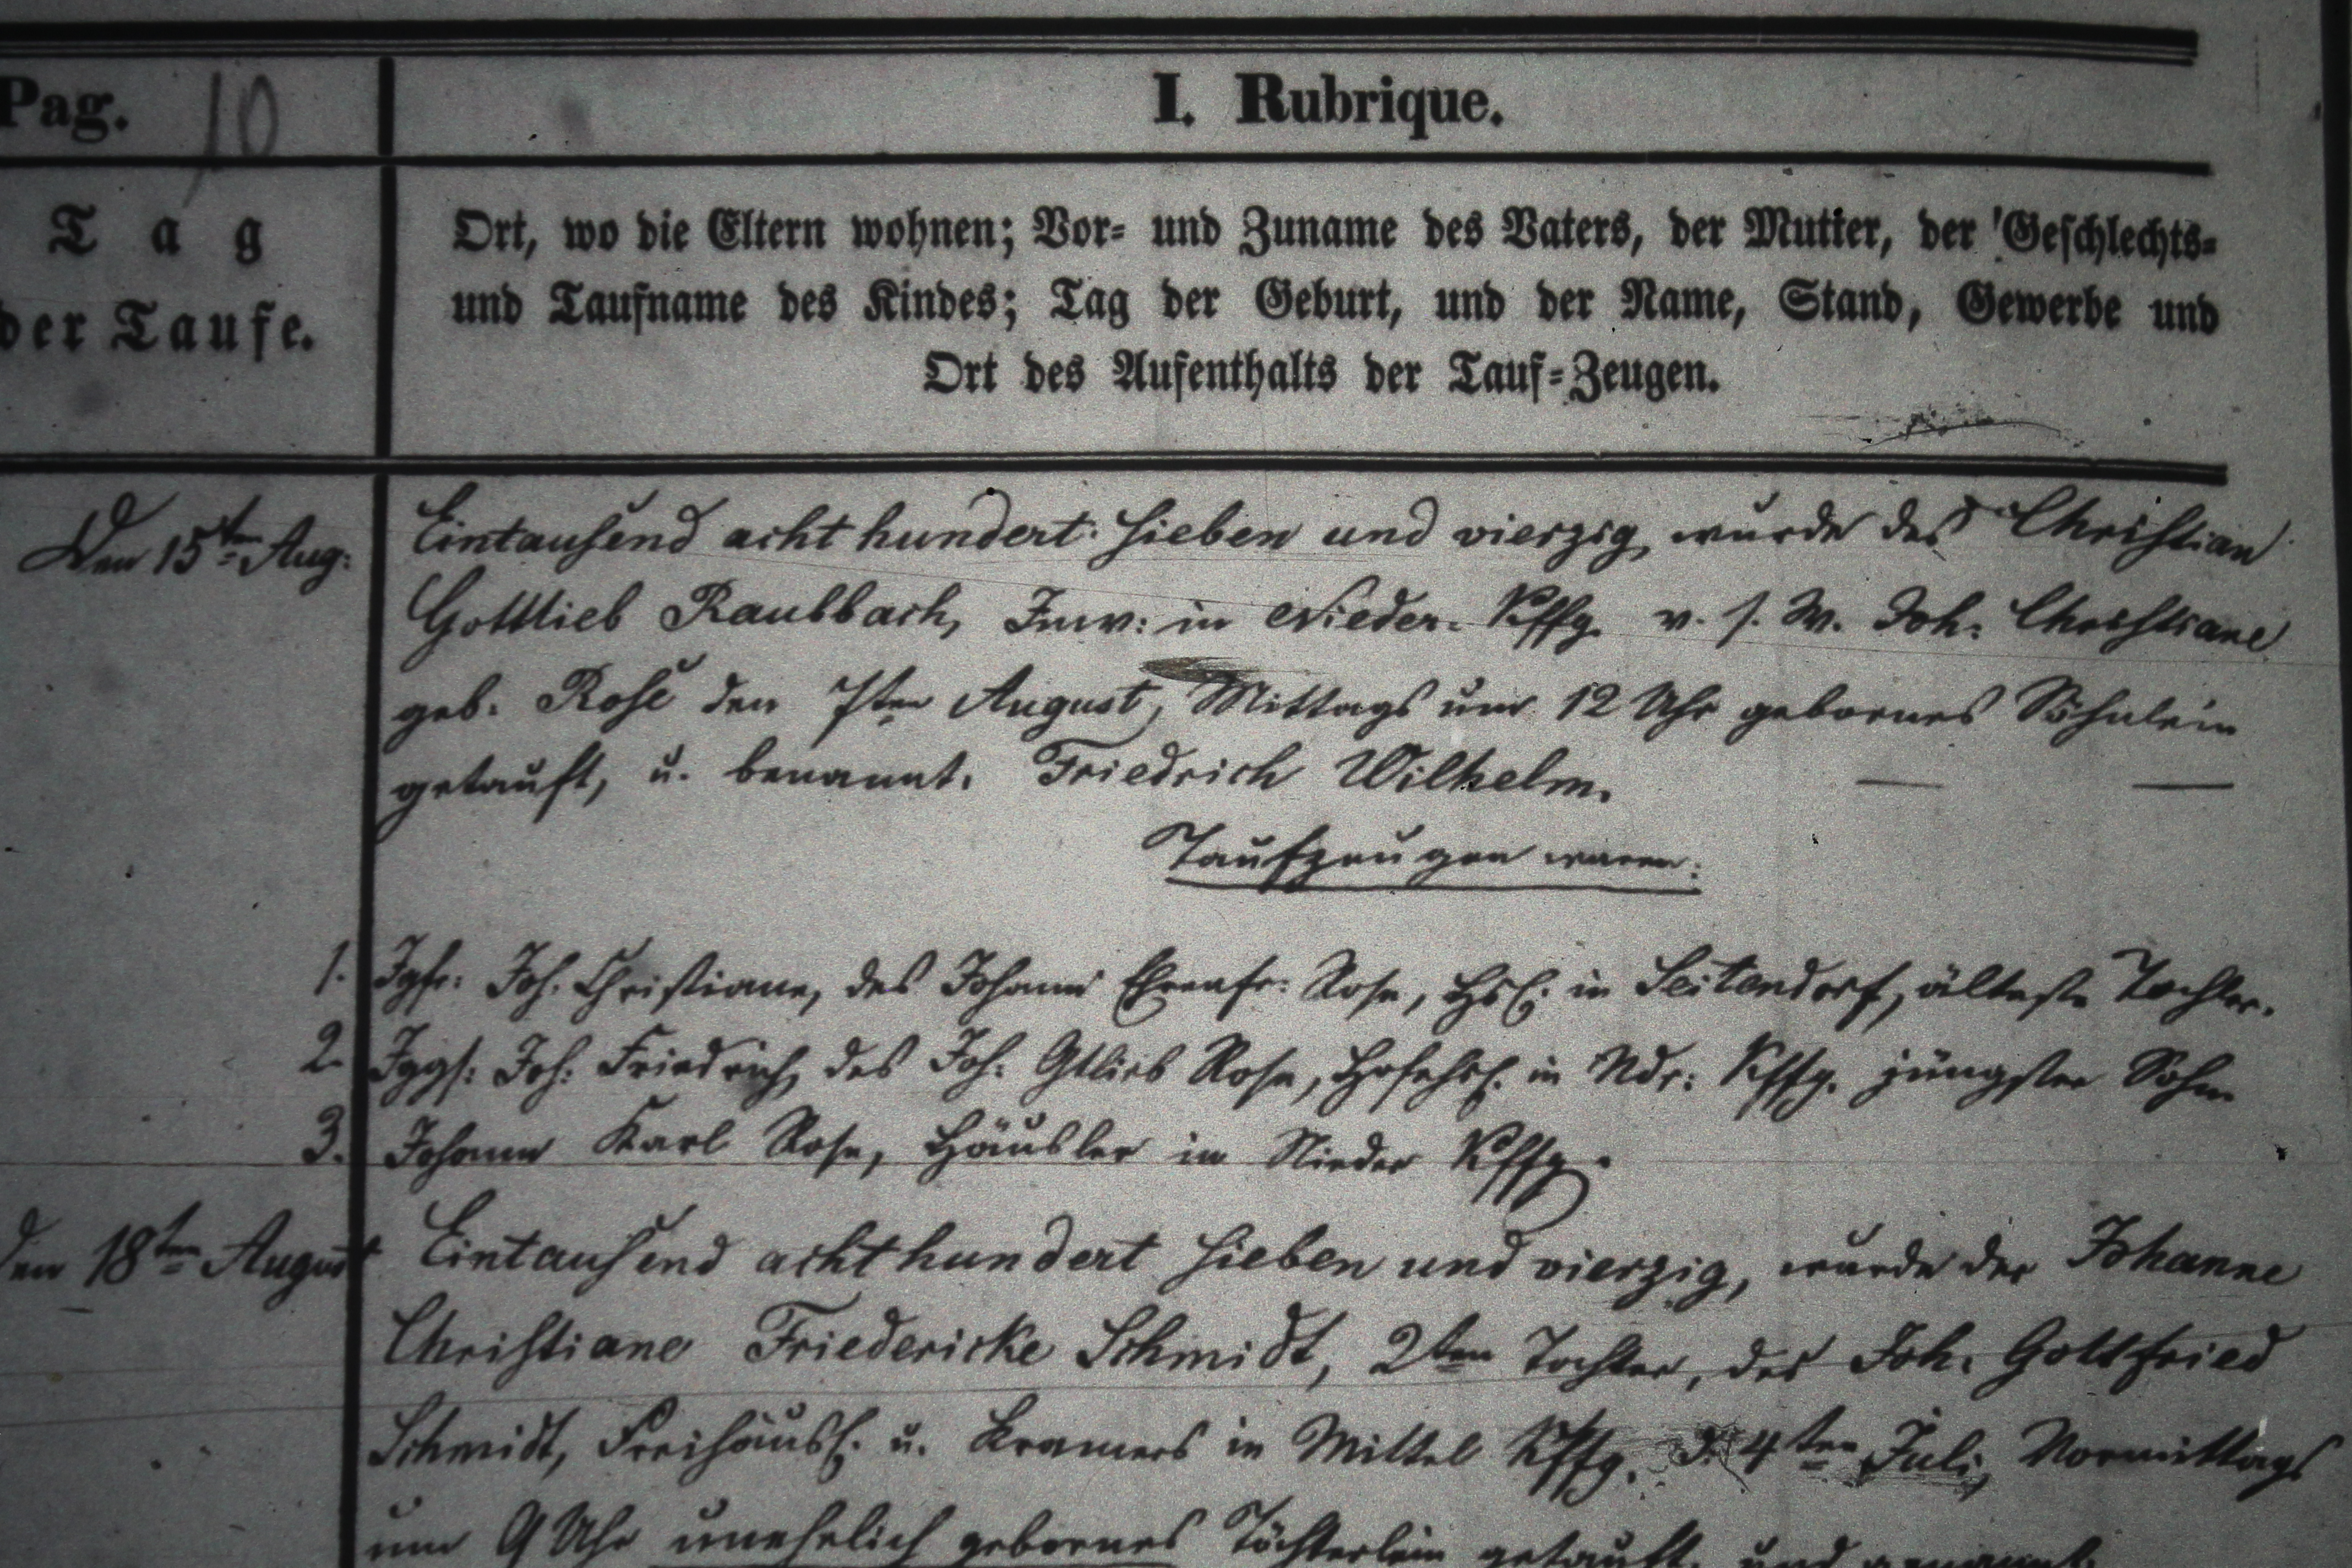 Pag. 10
I. Rubrique.
Tag
der Taufe.
Ort, wo die Eltern wohnen; Vor- und Zuname des Vaters, der Mutter, der Geschlechts-
und Taufname des Kindes; Tag der Geburt, und der Name, Stand, Gewerbe und
Ort des Aufenthalts der Tauf-Zeugen.
Den 15ten Aug:
Eintausend acht hundert sieben und vierzig, wurde des Christian
Gottlieb Raubbach, Inw: in Nieder-Kffg. v. s. W. Joh. Christiane
geb. Rose den 7ten August, Mittags um 12 Uhr gebornes Söhnlein
getauft, u. benannt. Friedrich Wilhelm.
Taufzeugen waren:
1. Jgfr: Joh. Christiane, des Johann Ehrenfr: Rose, Hsl: in Seitendorf, älteste Tochter.
2. Jggs: Joh: Friedrich, des Joh. Gtlieb Rose, Hofehsl. in Ndr: Kffg. jüngster Sohn
3. Johann Karl Rose, Häusler in Nieder Kffg.
den 18ten August
Eintausend acht hundert sieben und vierzig, wurde der Johanne
Christiane Friedericke Schmidt, 2ten Tochter, des Joh. Gottfried
Schmidt, Freihäusl. u. Kramers in Mittel Kffg. d. 4ten Juli, Vormittags
um 9 Uhr unehelich gebornes Töchterlein getauft, und genannt.